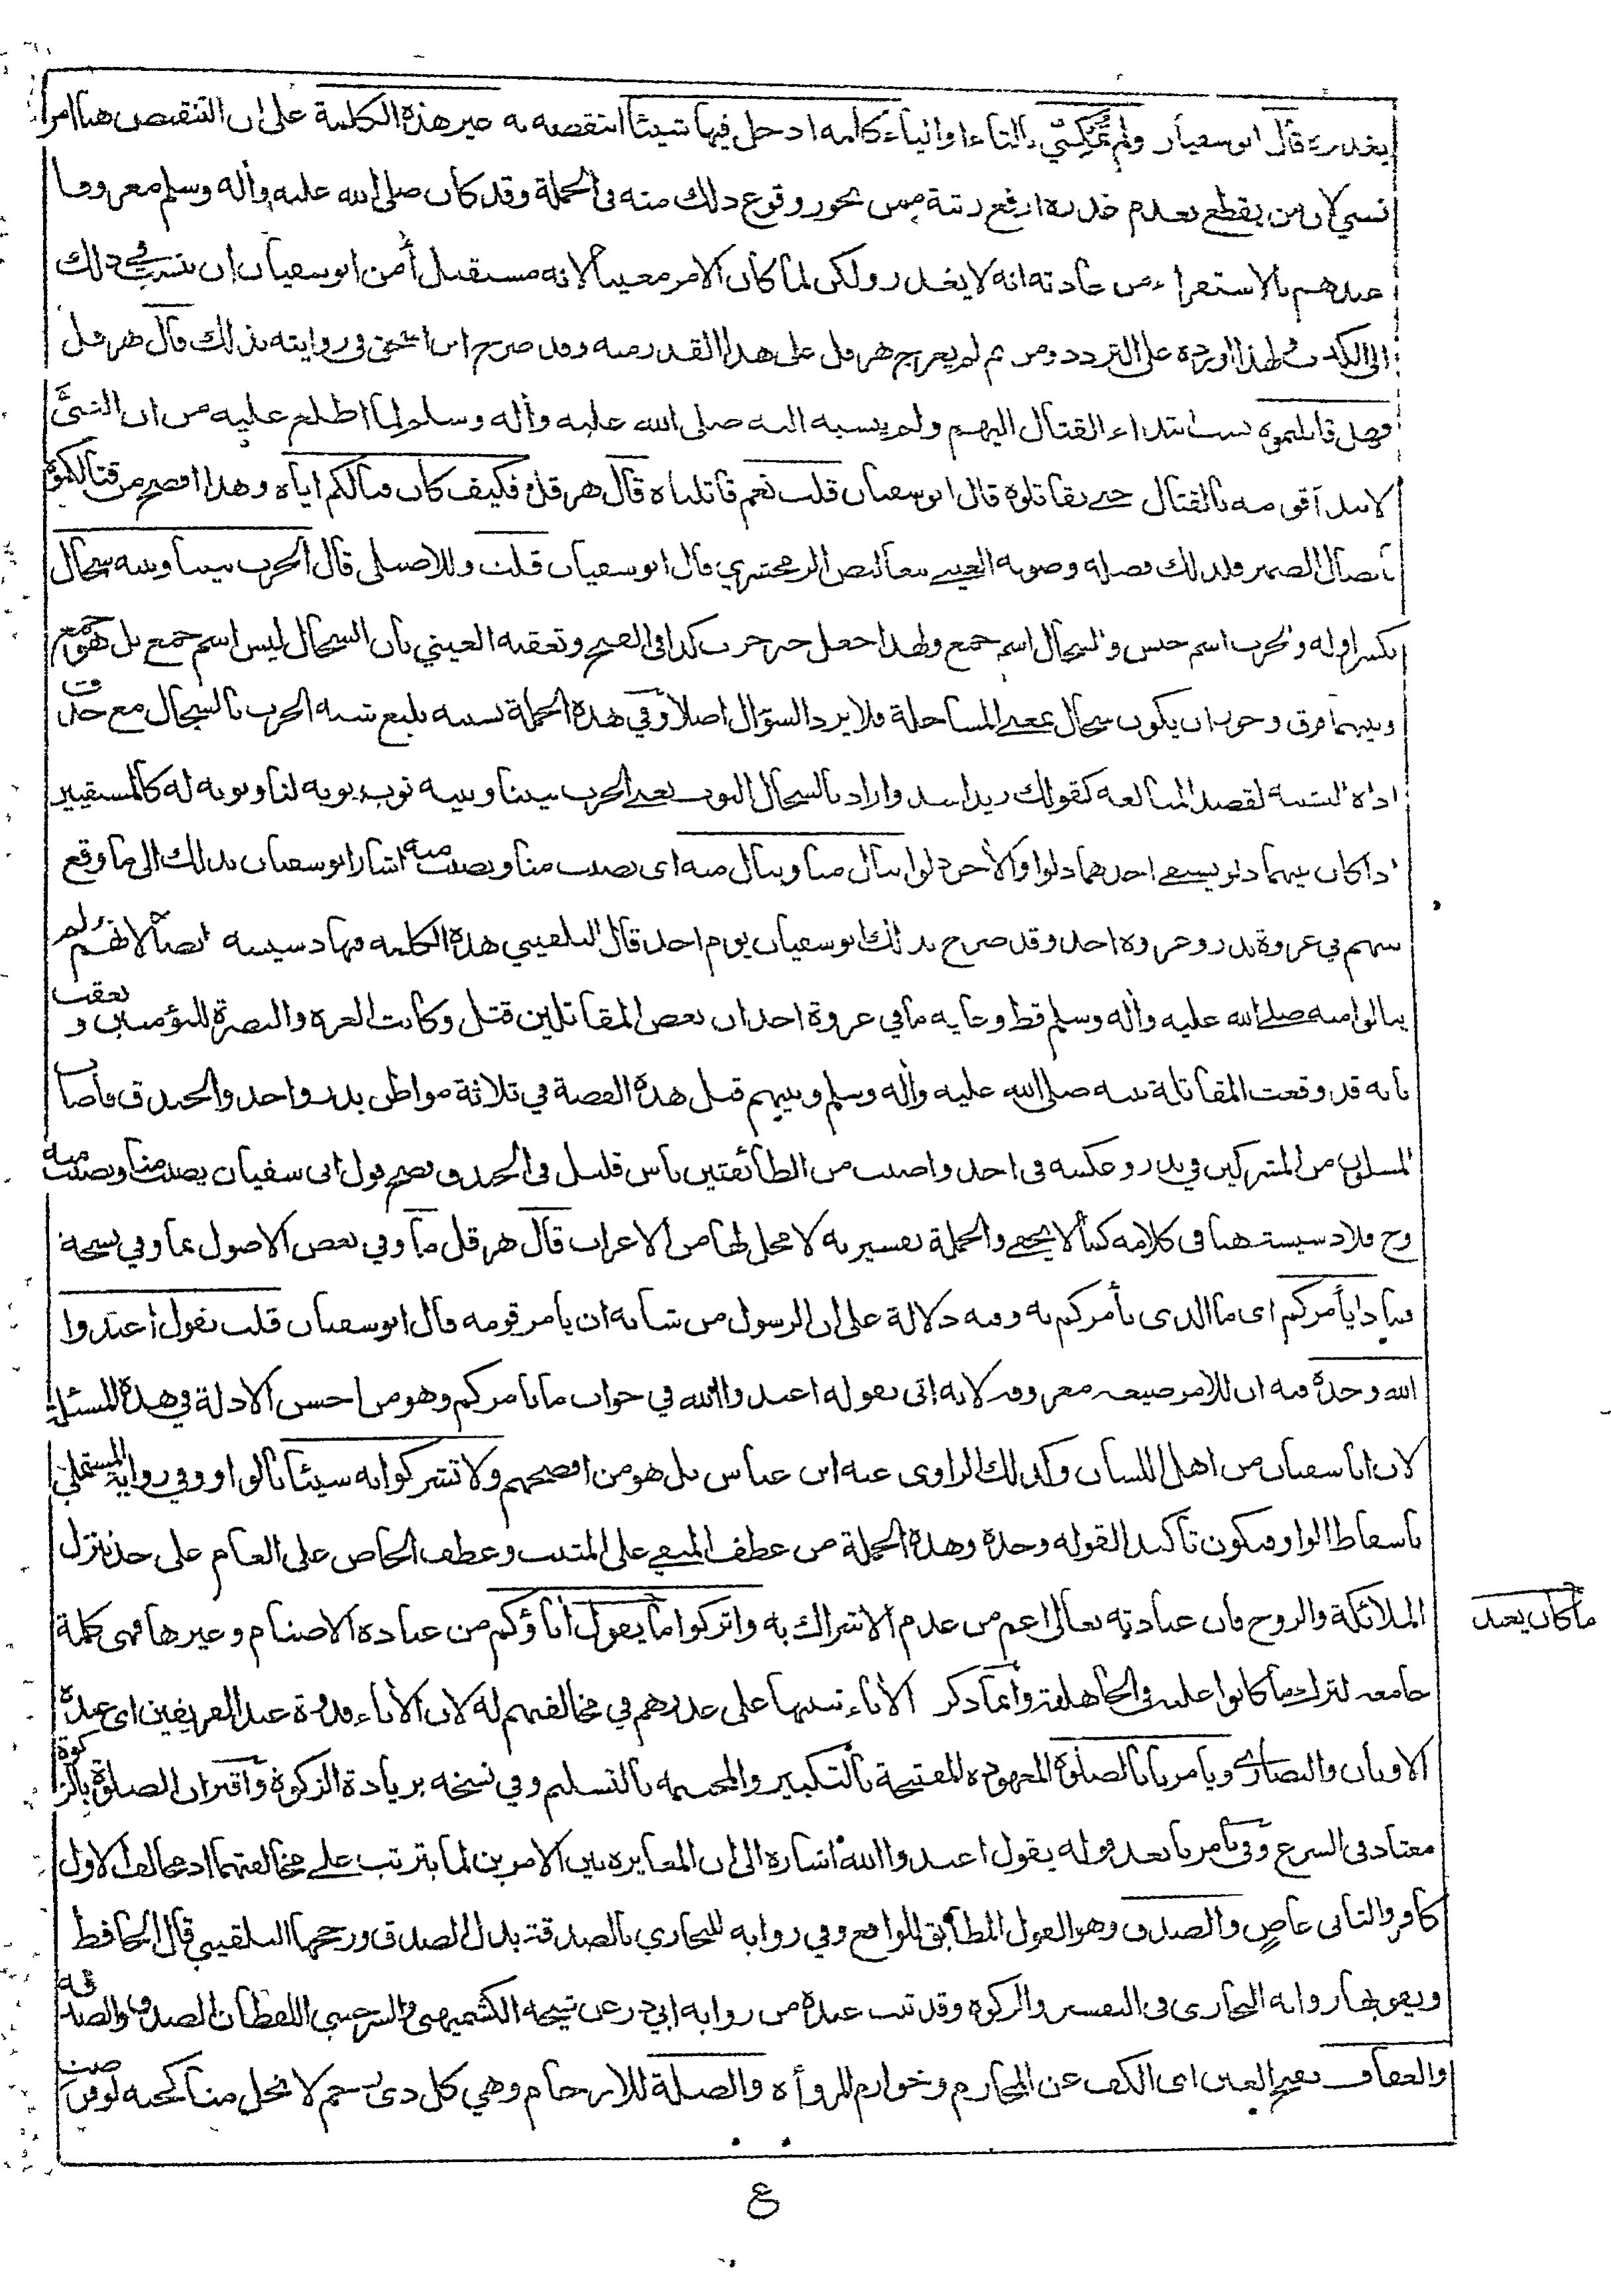 يغدر به قال ابو سفيان ولم تمكني بالتاء او الياء كلمة ادخل فيها شيئا انتقصه به غير هذه الكلمة على ان التنقيص هنا امر
نسبي لان من يقطع بعدم غدره ارفع رتبة ممن يجوز وقوع ذلك منه في الجملة وقد كان صلى الله عليه وأله وسلم معروفا
عندهم بالاستقراء من عادته انه لا يغدر ولكن لما كان الامر مغيبا لانه مستقبل أمن ابو سفيان ان ينسب في ذلك
الى الكذب ولهذا اورده على التردد ومن ثم لم يعرج هرقل على هذا القدر منه وقد صرح ابن اسحق في روايته بذلك قال هرقل
فهل قاتلتموه نسب ابتداء القتال اليهم ولم ينسبه اليه صلى الله عليه وأله وسلم لما اطلع عليه من ان النبيَّ
لا يبدأ قومه بالقتال حتى يقاتلوه قال ابو سفيان قلت نعم قاتلناه قال هرقل فكيف كان قتالكم اياه وهذا افصح من قتالكموه
باتصال الضمير فلذلك فصله وصوبه العيني تبعا لنص الزمخشري قال ابو سفيان قلت وللاصيلي قال الحرب بيننا وبينه سجال
بكسر اوله والحرب اسم جنس والسجال اسم جمع ولهذا جعل خبر حرب كذا في الفتح وتعقبه العيني بان السجال ليس اسم جمع بل هو جمع
وبينهما فرق وجوز ان يكون سجال بمعنى المساجلة فلا يرد السؤال اصلا وفي هذه الجملة تشبيه بليغ شبه الحرب بالسجال مع حذف
اداة التشبيه لقصد المبالغة كقولك زيد اسد واراد بالسجال النوب يعني الحرب بيننا وبينه نوب نوبة لنا ونوبة له كالمستقيين
اذا كان بينهما دلو يستقي احدهما دلوا والأخر دلوا ينال منا وننال منه اى يصيب منا ونصيب منه اشار ابو سفيان بذلك الى ما وقع
بينهم في غزوة بدر وغزوة احد وقد صرح بذلك ابو سفيان يوم احد قال البلقيني هذه الكلمة فيها دسيسة ايضا لانهم لم
ينالوا منه صلى الله عليه وأله وسلم قط وغاية ما في غزوة احد ان بعض المقاتلين قتل وكانت العزة والنصرة للمؤمنين وتعقب
بانه قد وقعت المقاتلة بينه صلى الله عليه وأله وسلم وبينهم قبل هذه القصة في ثلاثة مواطن بدر واحد والخندق فاصاب
المسلمون من المشركين في بدر وعكسه في احد واصيب من الطائفتين ناس قليل في الخندق فصح قول ابى سفيان يصيب منا ونصيب منه
وح فلا دسيسة هنا في كلامه كما لا يخفى والجملة تفسيرية لا محل لها من الاعراب قال هرقل ما وفي بعض الاصول بما وفي نسخة
فماذا يأمركم اى ما الذى يأمركم به وفيه دلالة على ان الرسول من شانه ان يامر قومه قال ابو سفيان قلت يقول اعبدوا
الله وحده فيه ان للامر صيغة معروفة لانه اتى بقوله اعبدوا الله في جواب ما يامركم وهو من احسن الادلة في هذه المسئلة
لان ابا سفيان من اهل اللسان وكذلك الراوى عنه ابن عباس بل هو من افصحهم ولا تشركوا به شيئا بالواو وفي رواية المستملي
باسقاط الواو فيكون تأكيدا لقوله وحده وهذه الجملة من عطف المنفي على المثبت وعطف الخاص على العام على حد تنزل
الملائكة والروح فان عبادته تعالى اعم من عدم الاشراك به واتركوا ما يقول أباؤكم من عبادة الاصنام وغيرها فهى كلمة
ما كان يعبد
جامعة لترك ما كانوا عليه في الجاهلية وانما ذكر الأباء تنبيها على عذرهم في مخالفتهم له لان الأباء قدوة عند الفريقين اى عبدة
الاوثان والنصارى ويامرنا بالصلوة المعهودة المفتتحة بالتكبير والمختتمة بالتسليم وفي نسخة بزيادة الزكوة واقتران الصلوة بالزكوة
معتاد في الشرع وفي يامرنا بعد قوله يقول اعبدوا الله اشارة الى ان المغايرة بين الامرين لما يترتب على مخالفتهما اذ مخالف الاول
كافر والثانى عاصٍ والصدق وهو القول المطابق للواقع وفي رواية للبخاري بالصدقة بدل الصدق ورجحها البلقيني قال الحافظ
ويقويها رواية البخارى في التفسير والزكوة وقد ثبت عنده من رواية ابي ذر عن شيخه الكشميهنى والسرخسي اللفظان الصدق والصدقة
والعفاف بفتح العين اى الكف عن المحارم وخوارم المروأة والصلة للارحام وهي كل ذى رحم لا تحل مناكحته لو فرضت
ع